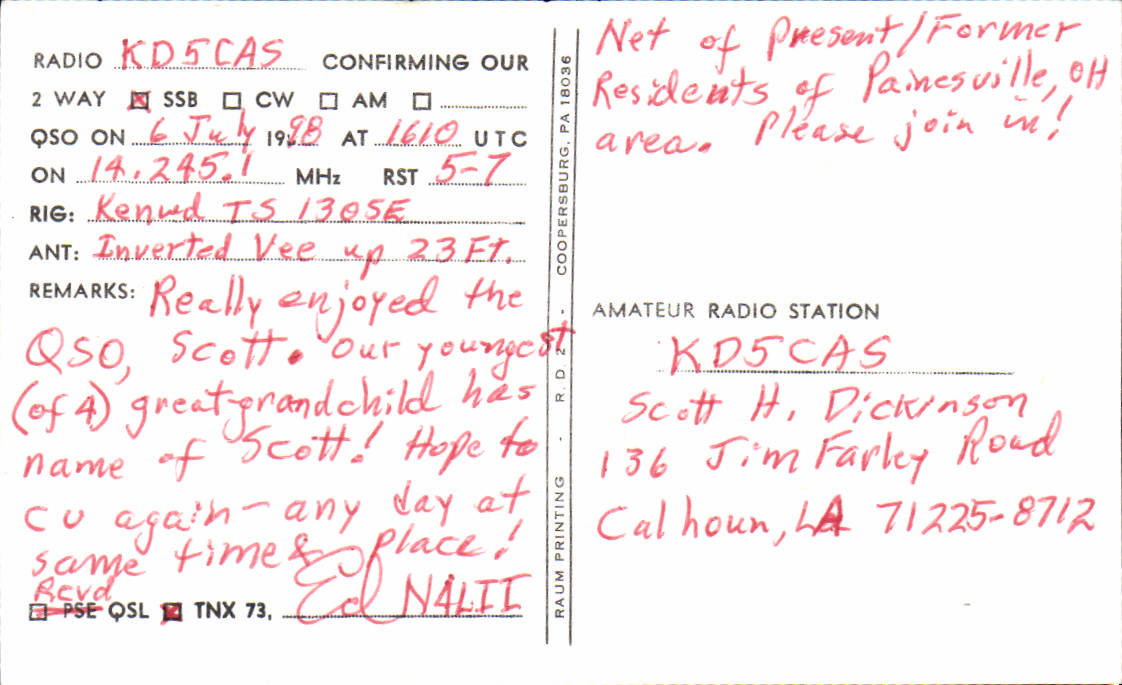 RADIO KD5CAS CONFIRMING OUR
2 WAY ☒ SSB ☐ CW ☐ AM ☐
QSO ON 6 July 1998 AT 1610 UTC
ON 14.245.1 MHz RST 5-7
RIG: Kenwd TS 130SE
ANT: Inverted Vee up 23 Ft.
REMARKS: Really enjoyed the
QSO, Scott. Our youngest
(of 4) great-grandchild has
name of Scott! Hope to
CU again - any day at
same time & place!
Rcvd
☐ PSE QSL ☒ TNX 73, Ed N4LII
RAUM PRINTING - R. D. 2 - COOPERSBURG, PA 18036
Net of Present/Former
Residents of Painesville, OH
area. Please join in!
AMATEUR RADIO STATION
KD5CAS
Scott H. Dickinson
136 Jim Farley Road
Calhoun, LA 71225-8712